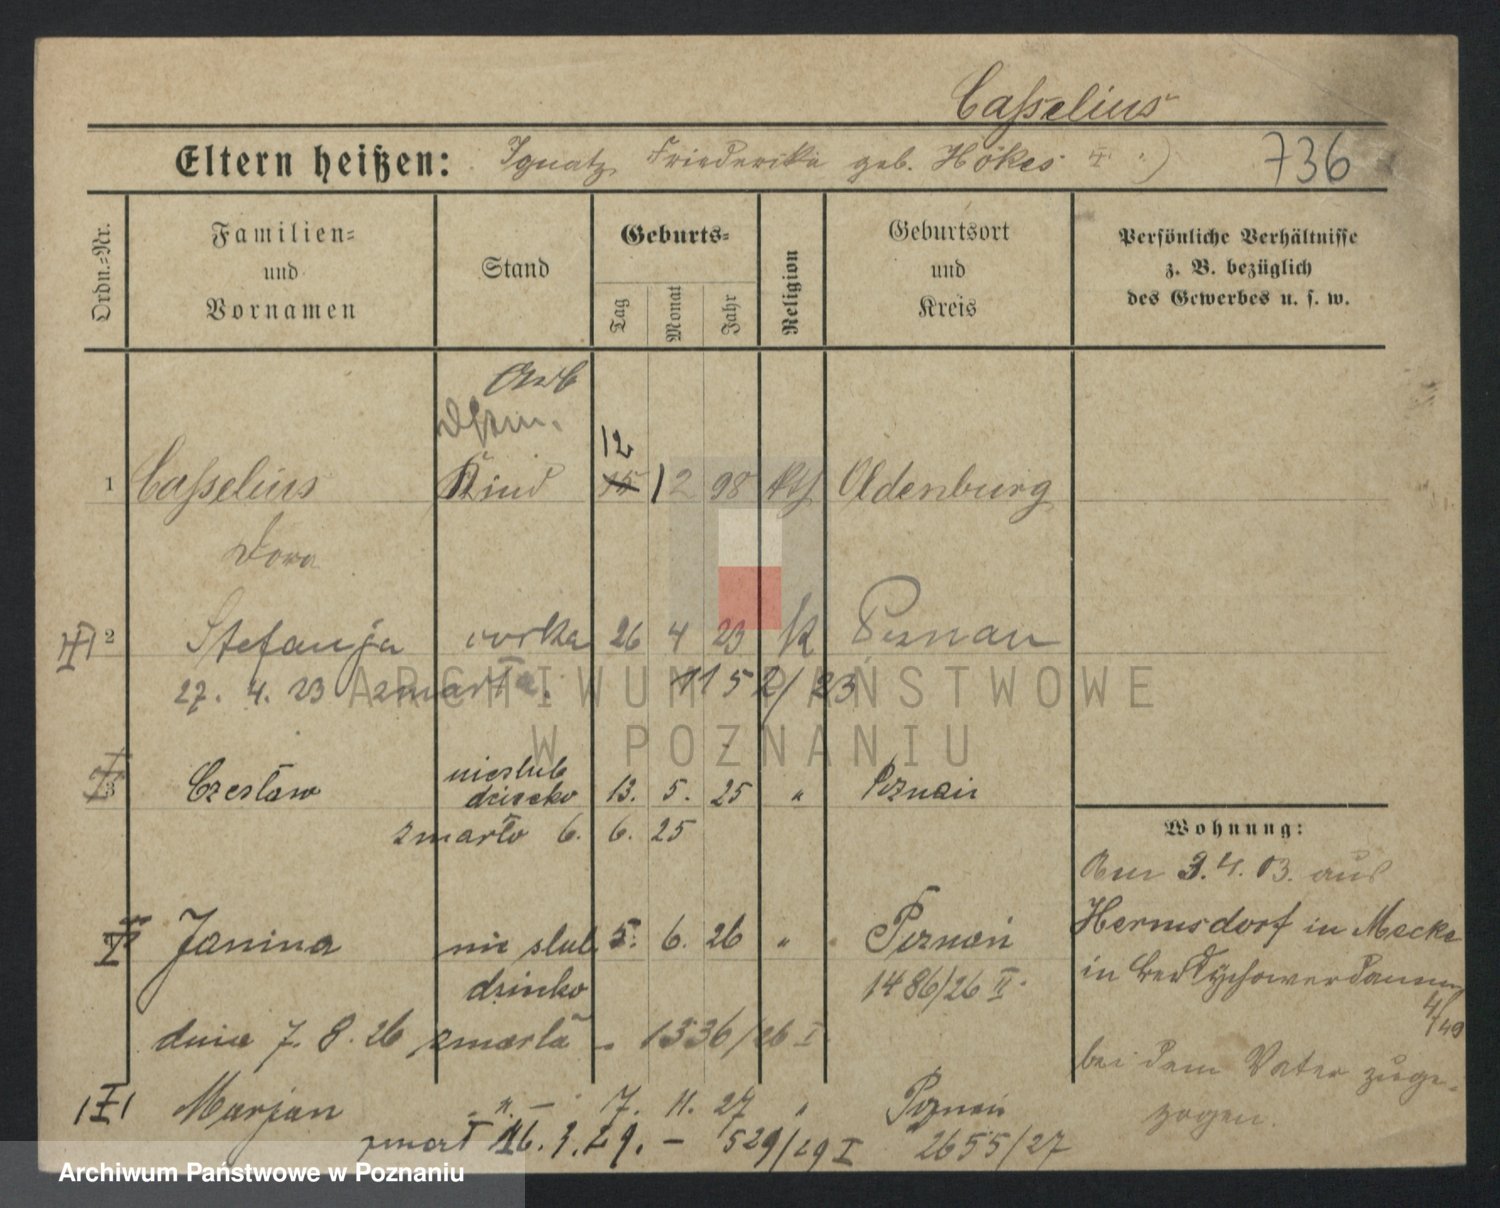 Casselius
Eltern heißen: Ignatz, Friederika geb. Hökes 736
Ordn.=Nr.
Familien=
und
Vornamen
Stand
Geburts=
Tag
Monat
Jahr
Religion
Geburtsort
und
Kreis
Persönliche Verhältnisse
z. B. bezüglich
des Gewerbes u. s. w.
12
1 Casselius Kind 15 12 98 kth Oldenburg
Dora
2 Stefanja córka 26 4 23 k Poznań
27. 4. 23 zmarła. 1152/23
3 Czesław nieślub dziecko 13. 5. 25 " Poznań
zmarło 6. 6. 25
Wohnung:
Am 3.4.03. aus
Hermsdorf in Meckl
in
4/49
bei dem Vater zuge-
zogen.
Janina nie ślub 5. 6. 26 " Poznań
dziecko 1486/26 II.
dnia 7. 8. 26 zmarła - 1336/26 I
Marjan " - 7. 11. 27 " Poznań
zmarł 16. 3. 29. - 529/29 I 2655/27
ARCHIWUM PAŃSTWOWE
W POZNANIU
Archiwum Państwowe w Poznaniu